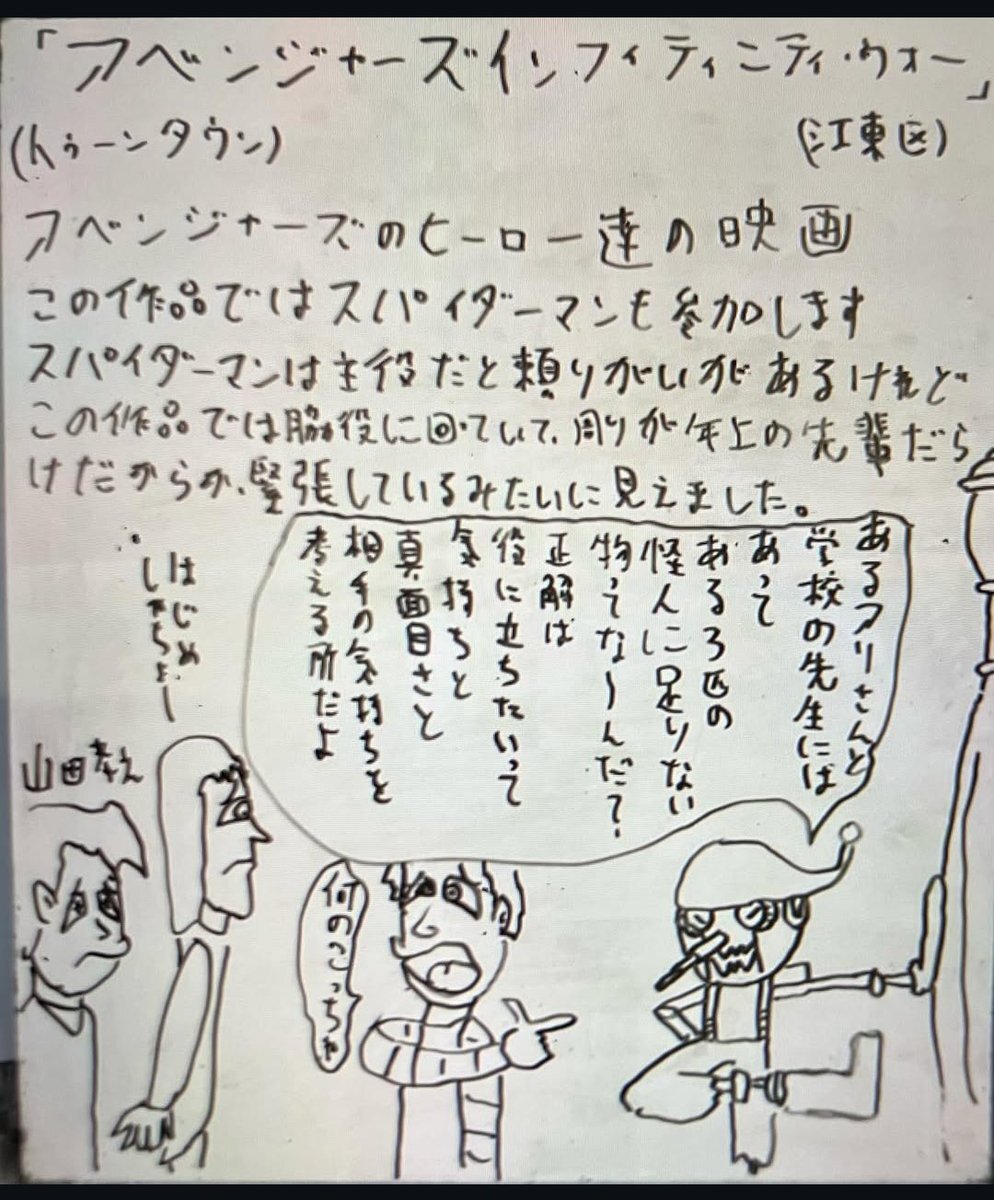 「アベンジャーズインフィティニティ・ウォー」
(トゥーンタウン)
(江東区)
アベンジャーズのヒーロー達の映画
この作品ではスパイダーマンも参加します
スパイダーマンは主役だと頼りがいがあるけれど
この作品では脇役に回っていて、周りが年上の先輩だら
けだからか、緊張しているみたいに見えました。
あるフリさんと
学校の先生には
あって
ある3匹の
怪人に足りない
物ってな〜んだ?
正解は
役に立ちたいって
気持ちと
真面目さと
相手の気持ちを
考える所だよ
はじめ
しちゃちょー
山田孝之
何のこっちゃ